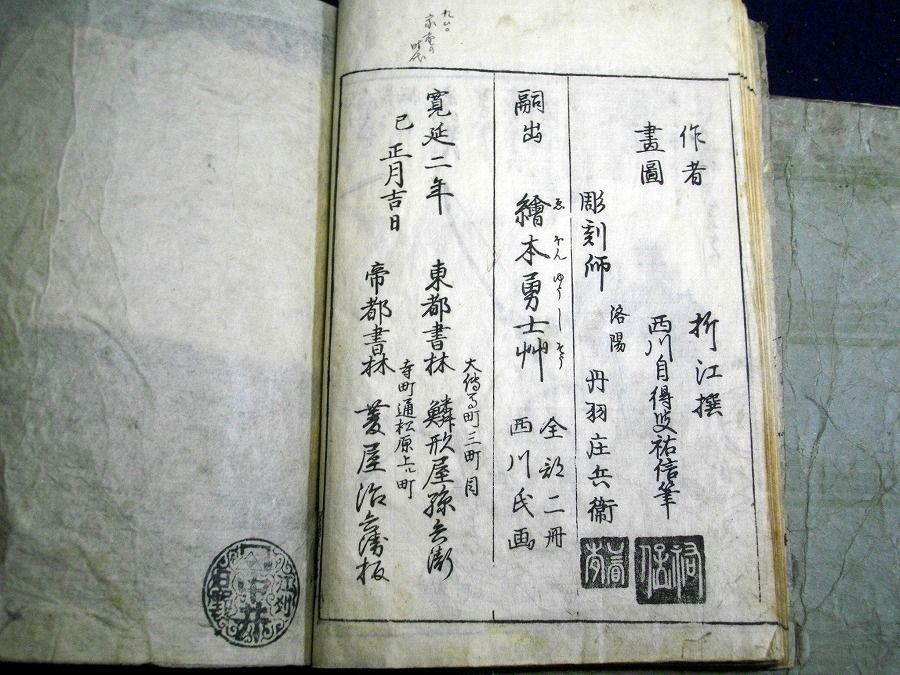 作者　折江撰
畫圖　西川自得叟祐信筆
彫刻師　洛陽　丹羽庄兵衞
祐信
嗣出　繪本勇士艸　全部二冊　西川氏画
ゑほんゆうしそう
寛延二年
己正月吉日
大傳馬町三町目
東都書林　鱗形屋孫兵衛
寺町通松原上ル町
帝都書林　菱屋治兵衛板